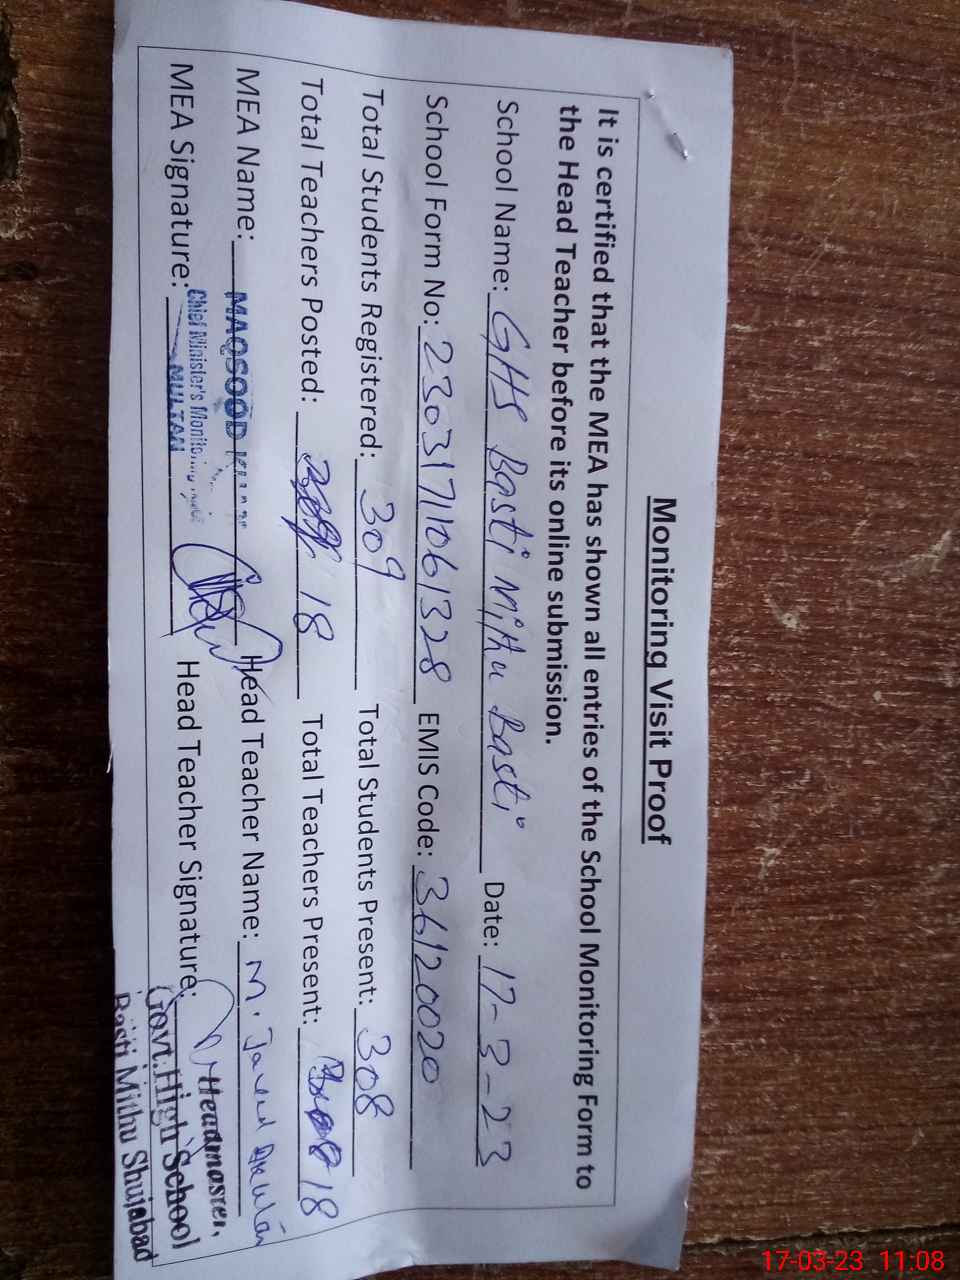 Monitoring Visit Proof
It is certified that the MEA has shown all entries of the School Monitoring Form to
the Head Teacher before its online submission.
School Name: GHS Basti Mithu Basti Date: 17-3-23
School Form No: 23031711061328 EMIS Code: 36120020
Total Students Registered: 309 Total Students Present: 308
Total Teachers Posted: 18 Total Teachers Present: 18
MEA Name: MAQSOOD Head Teacher Name: M. Javed
Chief Minister's Monitoring
MULTAN
MEA Signature: Head Teacher Signature:
Headmaster,
Govt: High School
Basti Mithu Shujabad
17-03-23 11:08